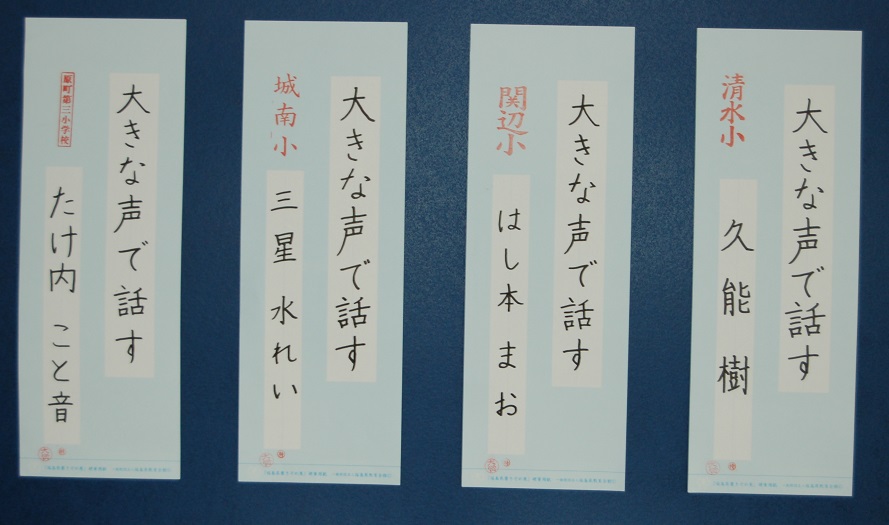 大きな声で話す
原町第三小学校
たけ内 こと音
大きな声で話す
城南小
三星 水れい
大きな声で話す
関辺小
はし本 まお
大きな声で話す
清水小
久能 樹